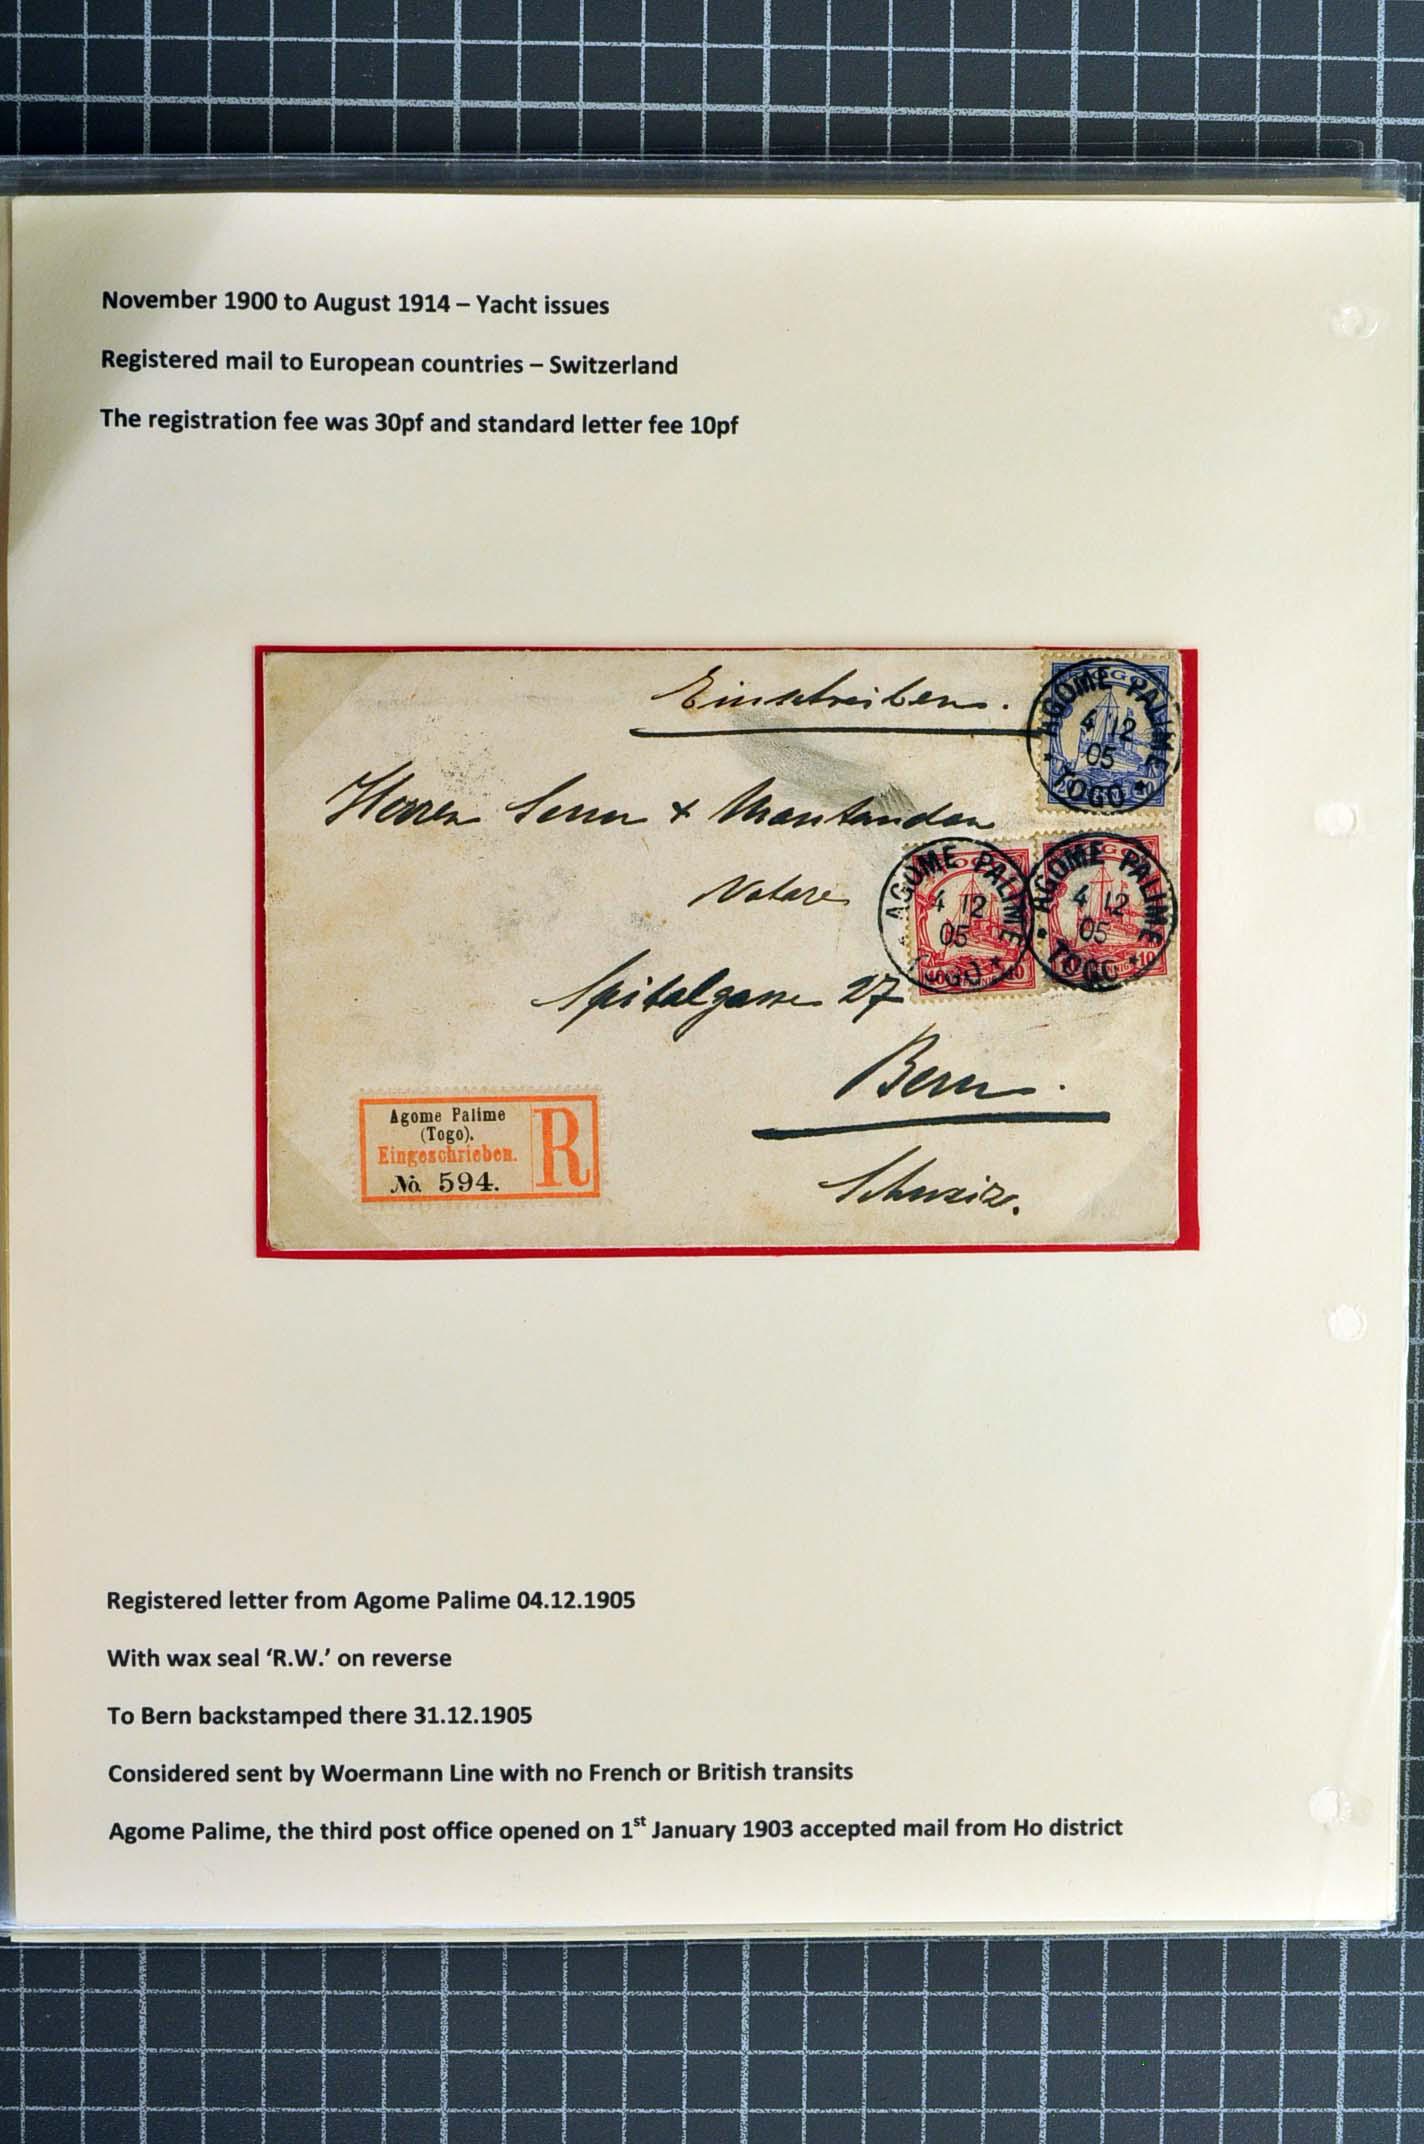 November 1900 to August 1914 – Yacht issues
Registered mail to European countries – Switzerland
The registration fee was 30pf and standard letter fee 10pf
Einschreiben.
TOGO
AGOME PALIME
4 12
05
* TOGO *
Herren & Montandon
AGOME PALIME
4 12
05
TOGO *
10 PFENNIG 10
AGOME PALIME
4 12
05
* TOGO *
10
Notare
Spitalgasse 27
Bern.
Schweiz.
Agome Palime
(Togo).
Eingeschrieben.
No. 594.
R
Registered letter from Agome Palime 04.12.1905
With wax seal ‘R.W.’ on reverse
To Bern backstamped there 31.12.1905
Considered sent by Woermann Line with no French or British transits
Agome Palime, the third post office opened on 1st January 1903 accepted mail from Ho district